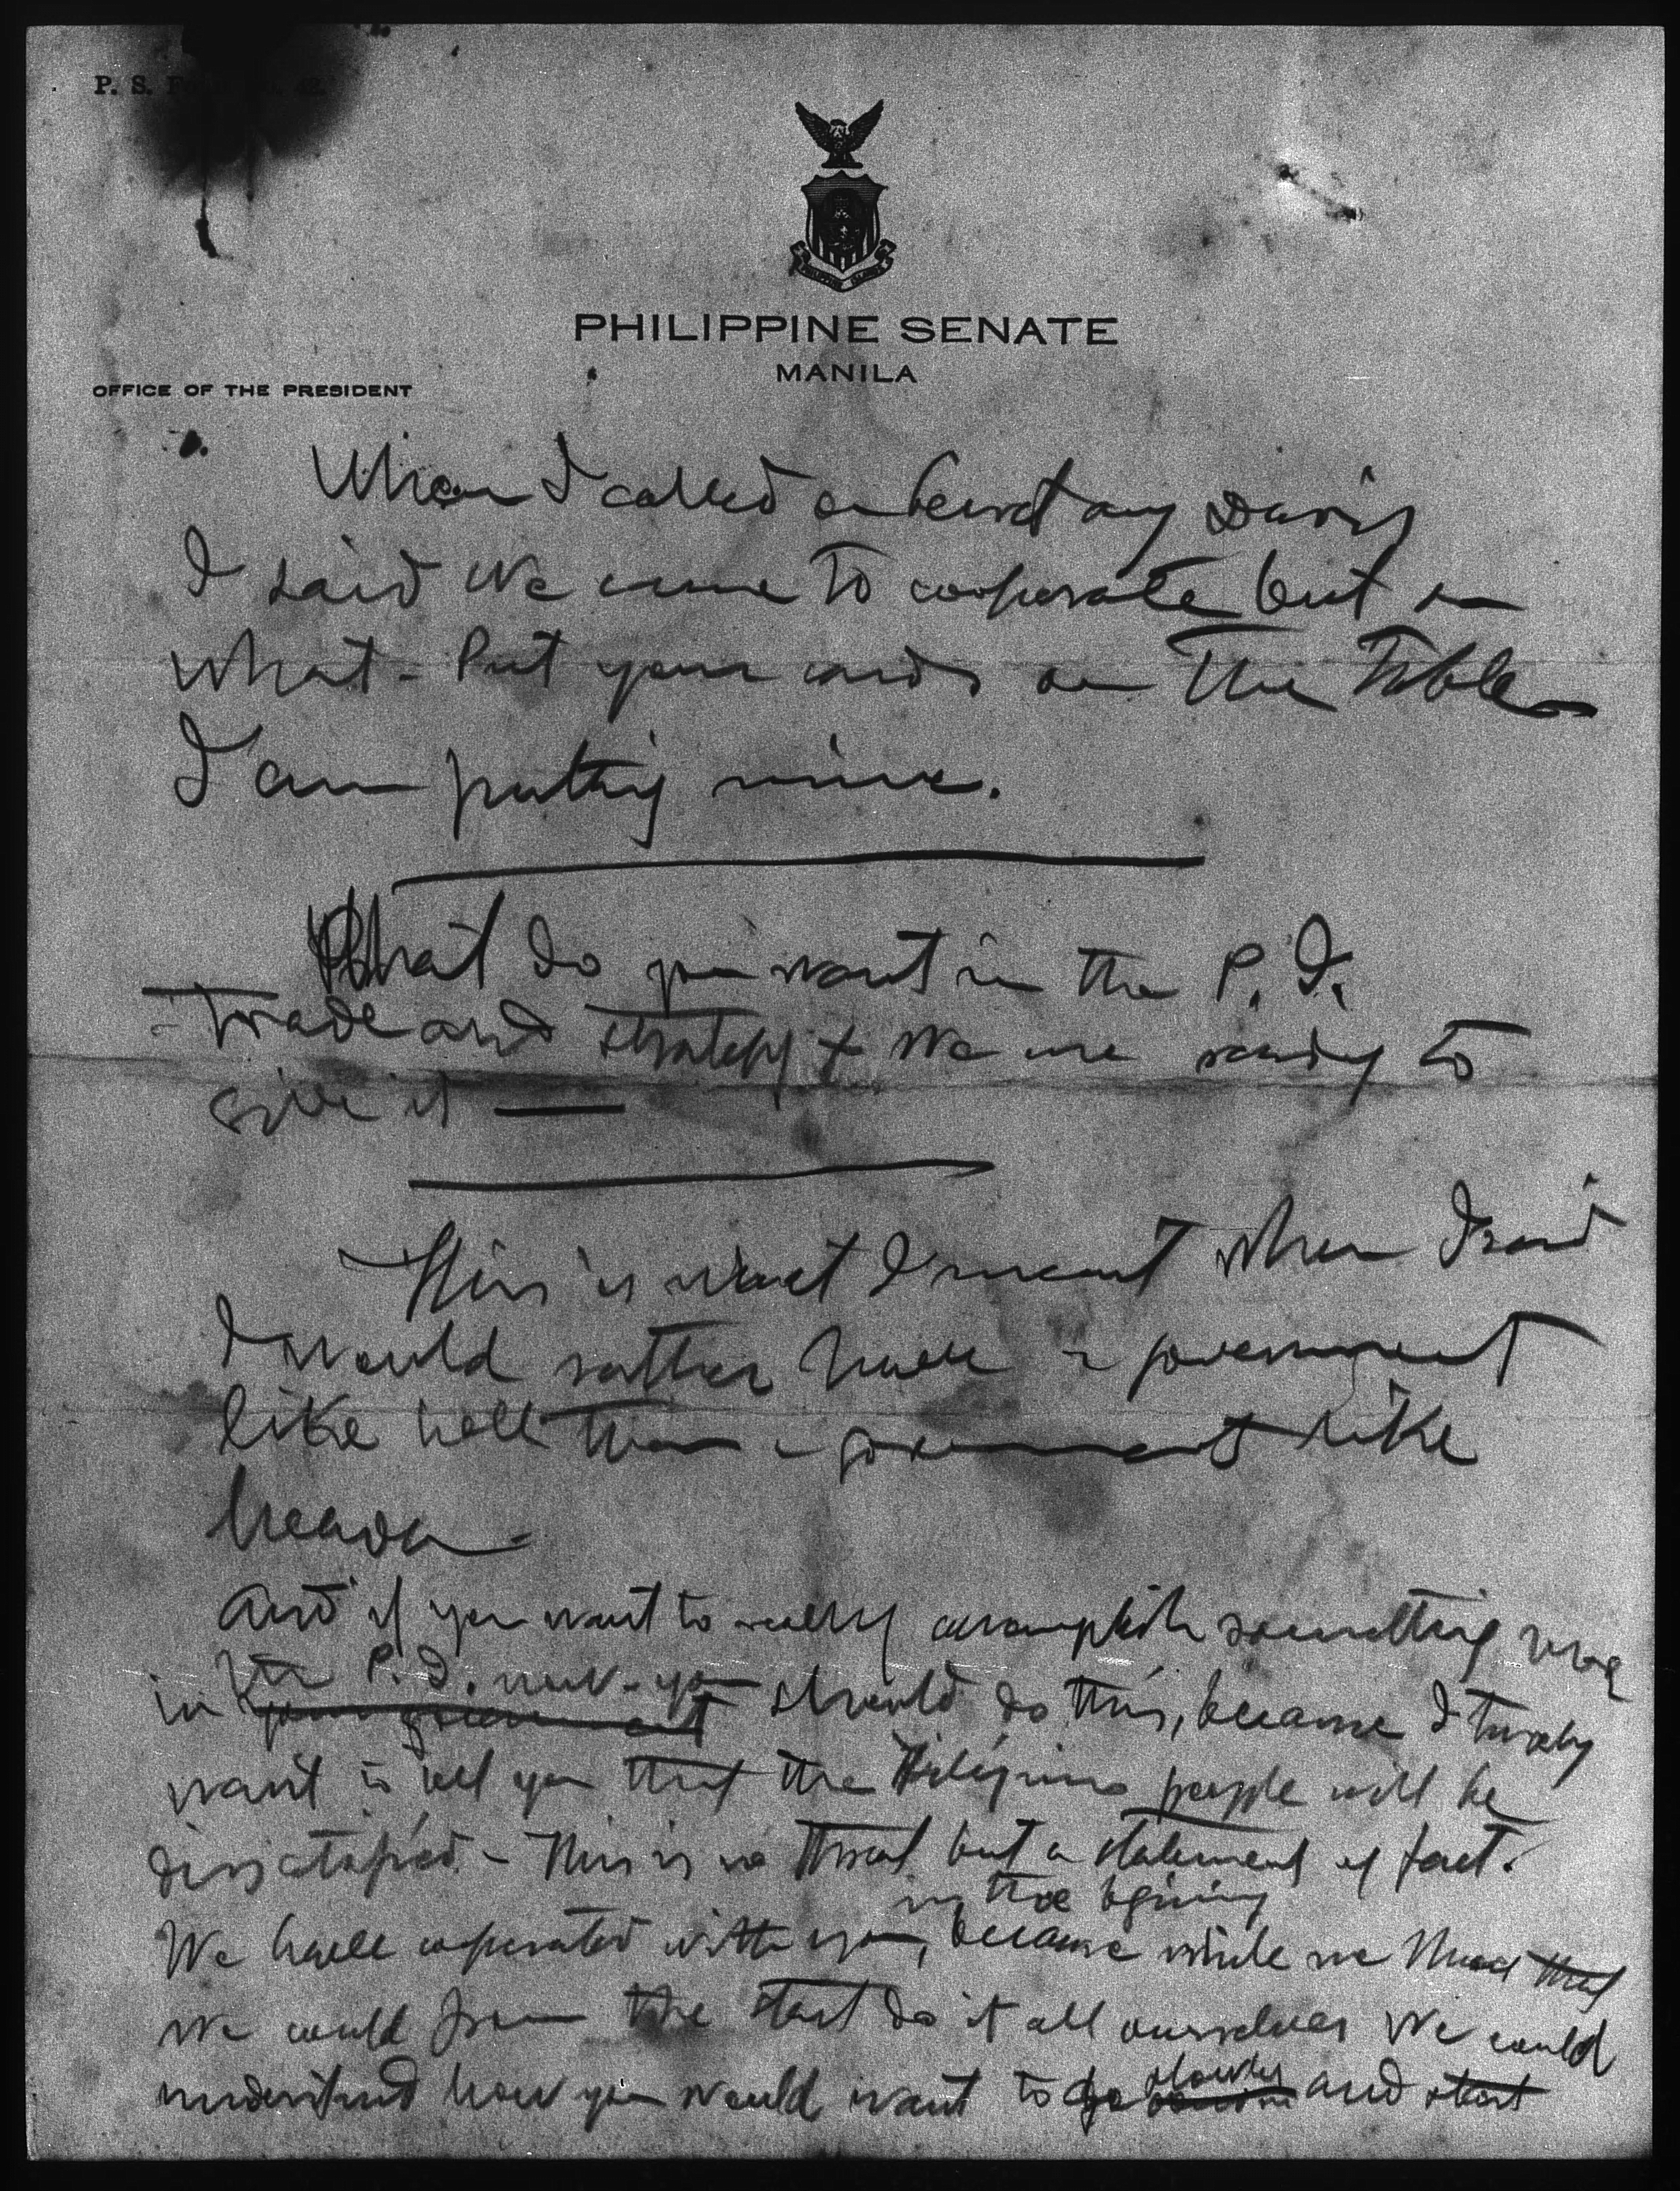 P. S. Fo
PHILIPPINE SENATE
MANILA
OFFICE OF THE PRESIDENT
When I called on Secretary Davis
I said We come to cooperate but on
what - Put your cards on The Table
I am putting mine.
What do you want in the P. I.
- Trade and strategy & We are ready to
give it —
This is what I meant when I said
I would rather have a government
like hell than a government like
heaven -
And if you want to really accomplish something
in the P. I. now - you should do this, because I
your government
want to tell you that the Filipino people will be
dissatisfied. - This is no threat but a statement of fact.
in the begining
We have cooperated with you, because while we that
we could from the start do it all ourselves We could
slowly
understand how you would want to go and start